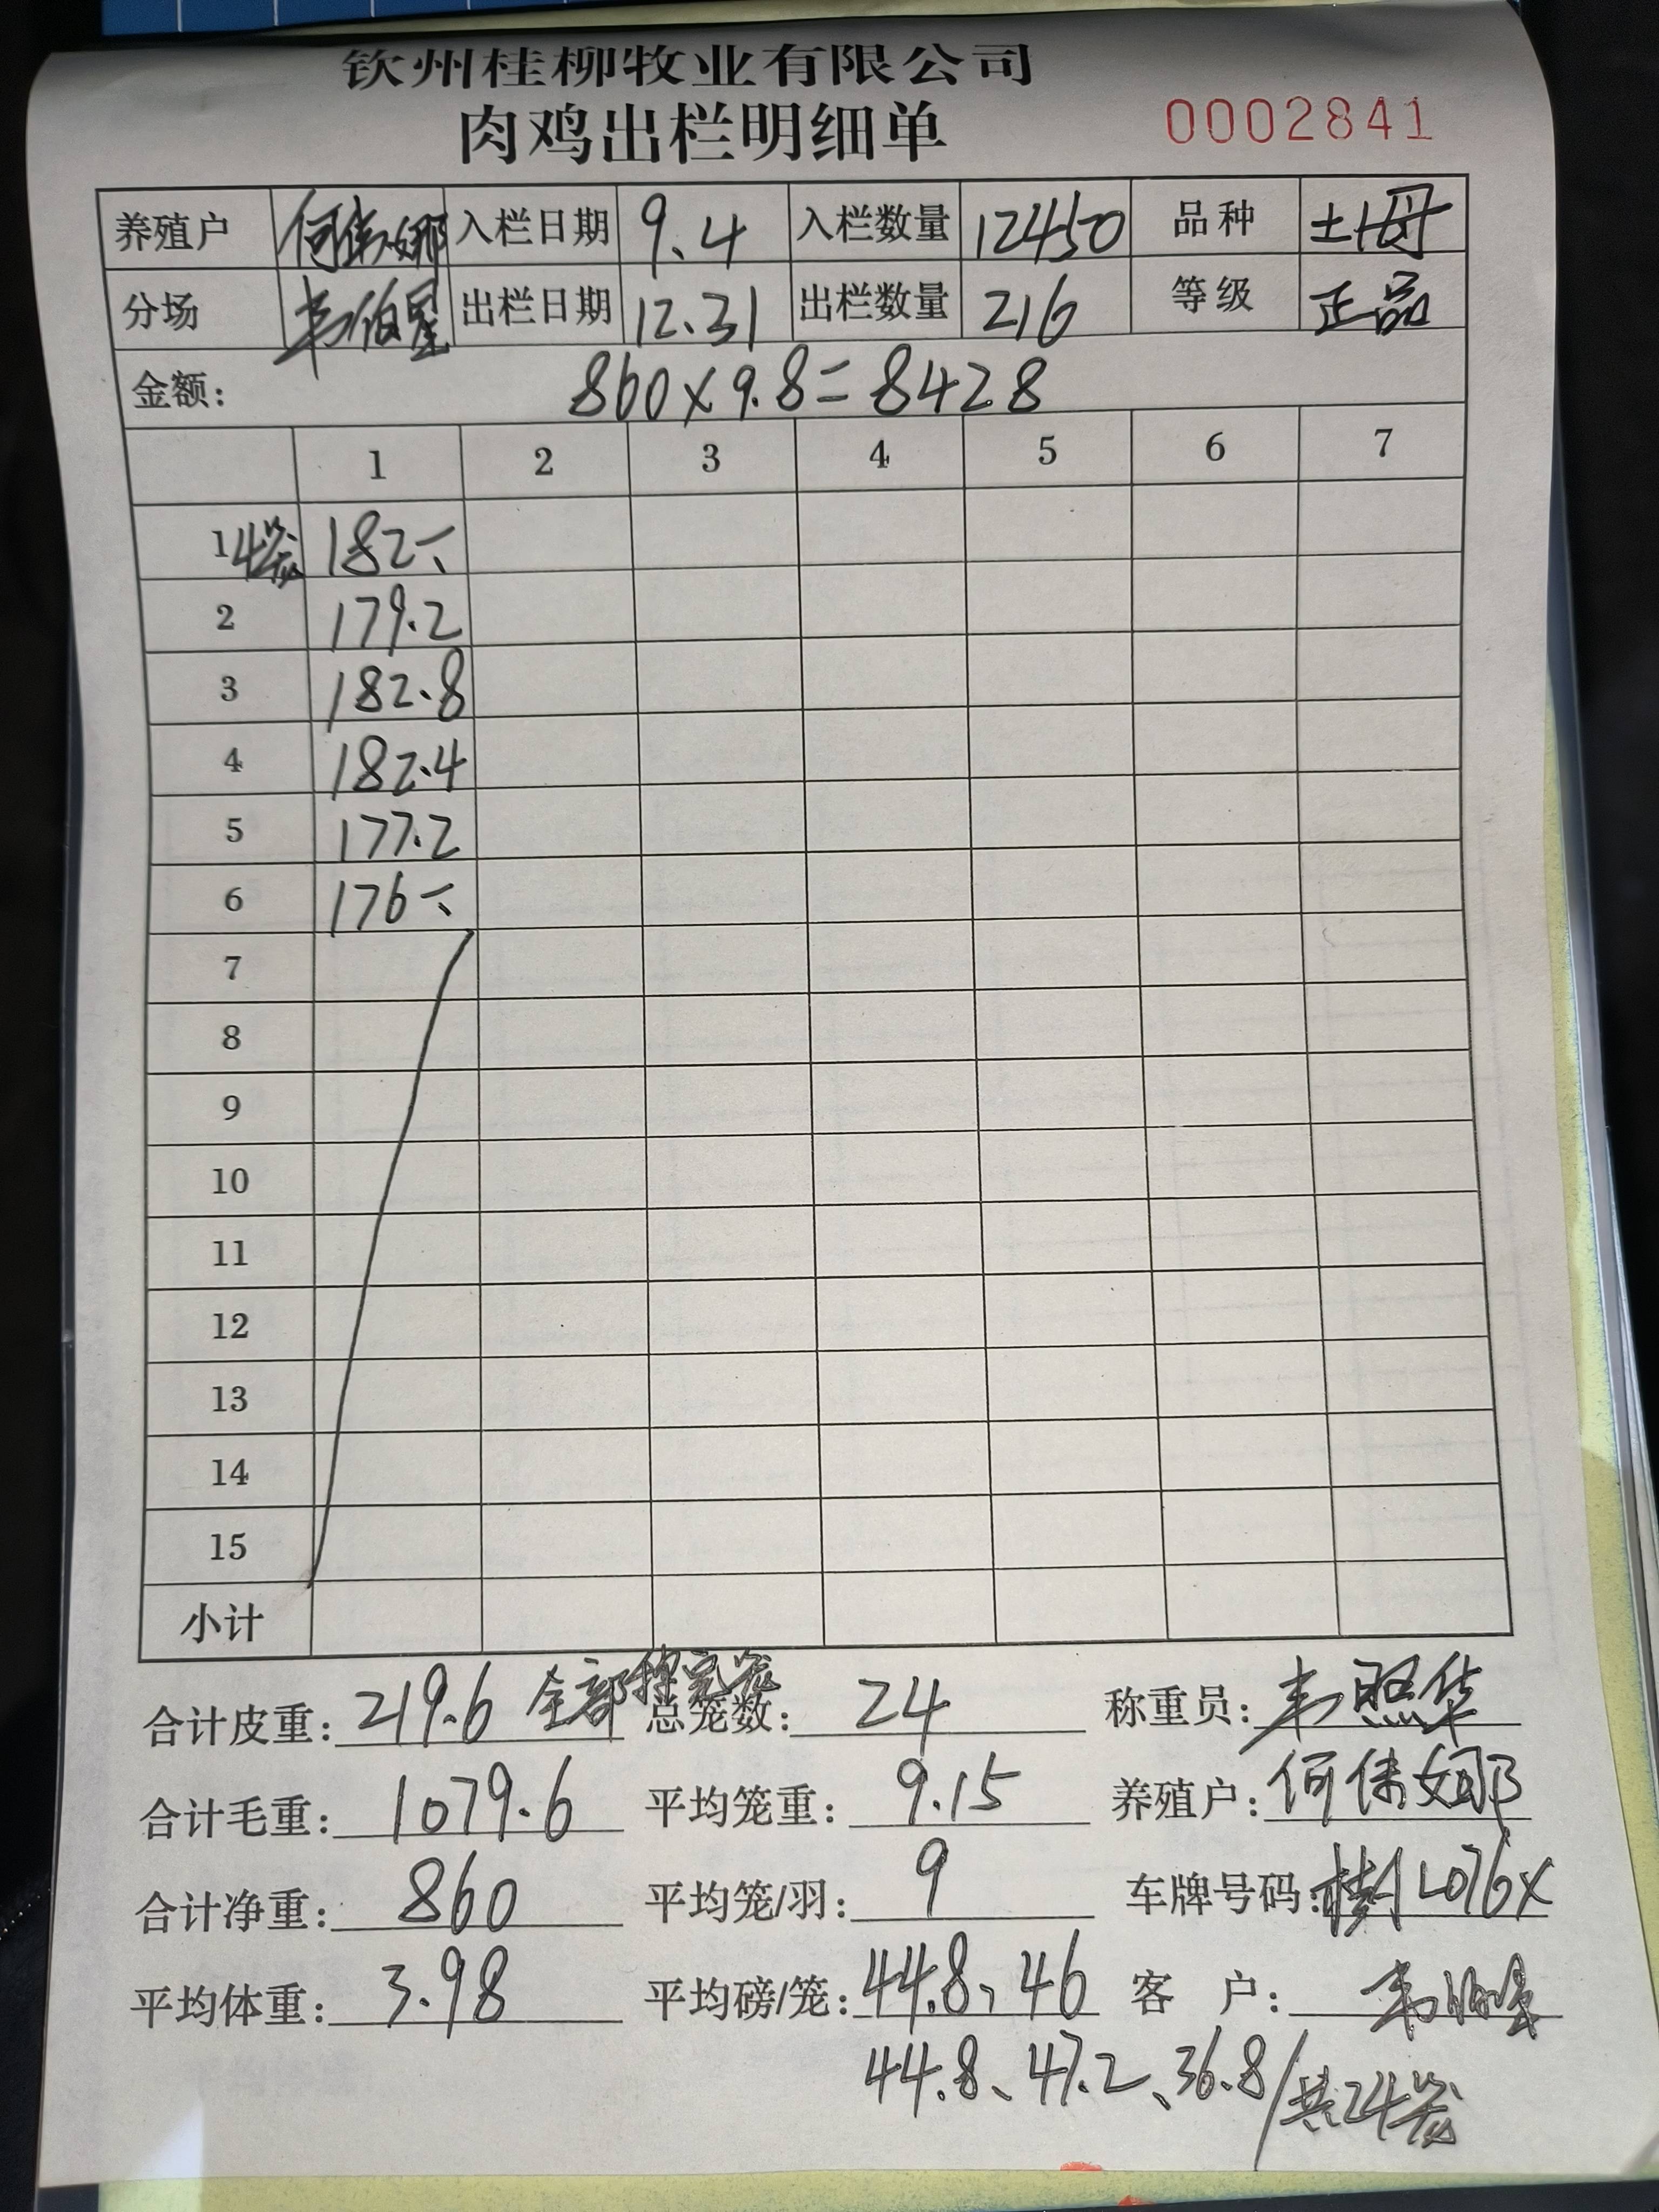 钦州桂柳牧业有限公司
肉鸡出栏明细单 0002841
养殖户 何伟娜 入栏日期 9.4 入栏数量 12450 品种 土母
分场 韦伯星 出栏日期 12.31 出栏数量 216 等级 正品
金额: 860×9.8=8428
1 2 3 4 5 6 7
1 4笼 182.
2 179.2
3 182.8
4 182.4
5 177.2
6 176.
7
8
9
10
11
12
13
14
15
小计
合计皮重: 219.6 全部 总笼数: 24 称重员: 韦照华
合计毛重: 1079.6 平均笼重: 9.15 养殖户: 何伟娜
合计净重: 860 平均笼/羽: 9 车牌号码: L076X
平均体重: 3.98 平均磅/笼: 44.8、46 客户:
44.8、47.2、36.8/共24笼